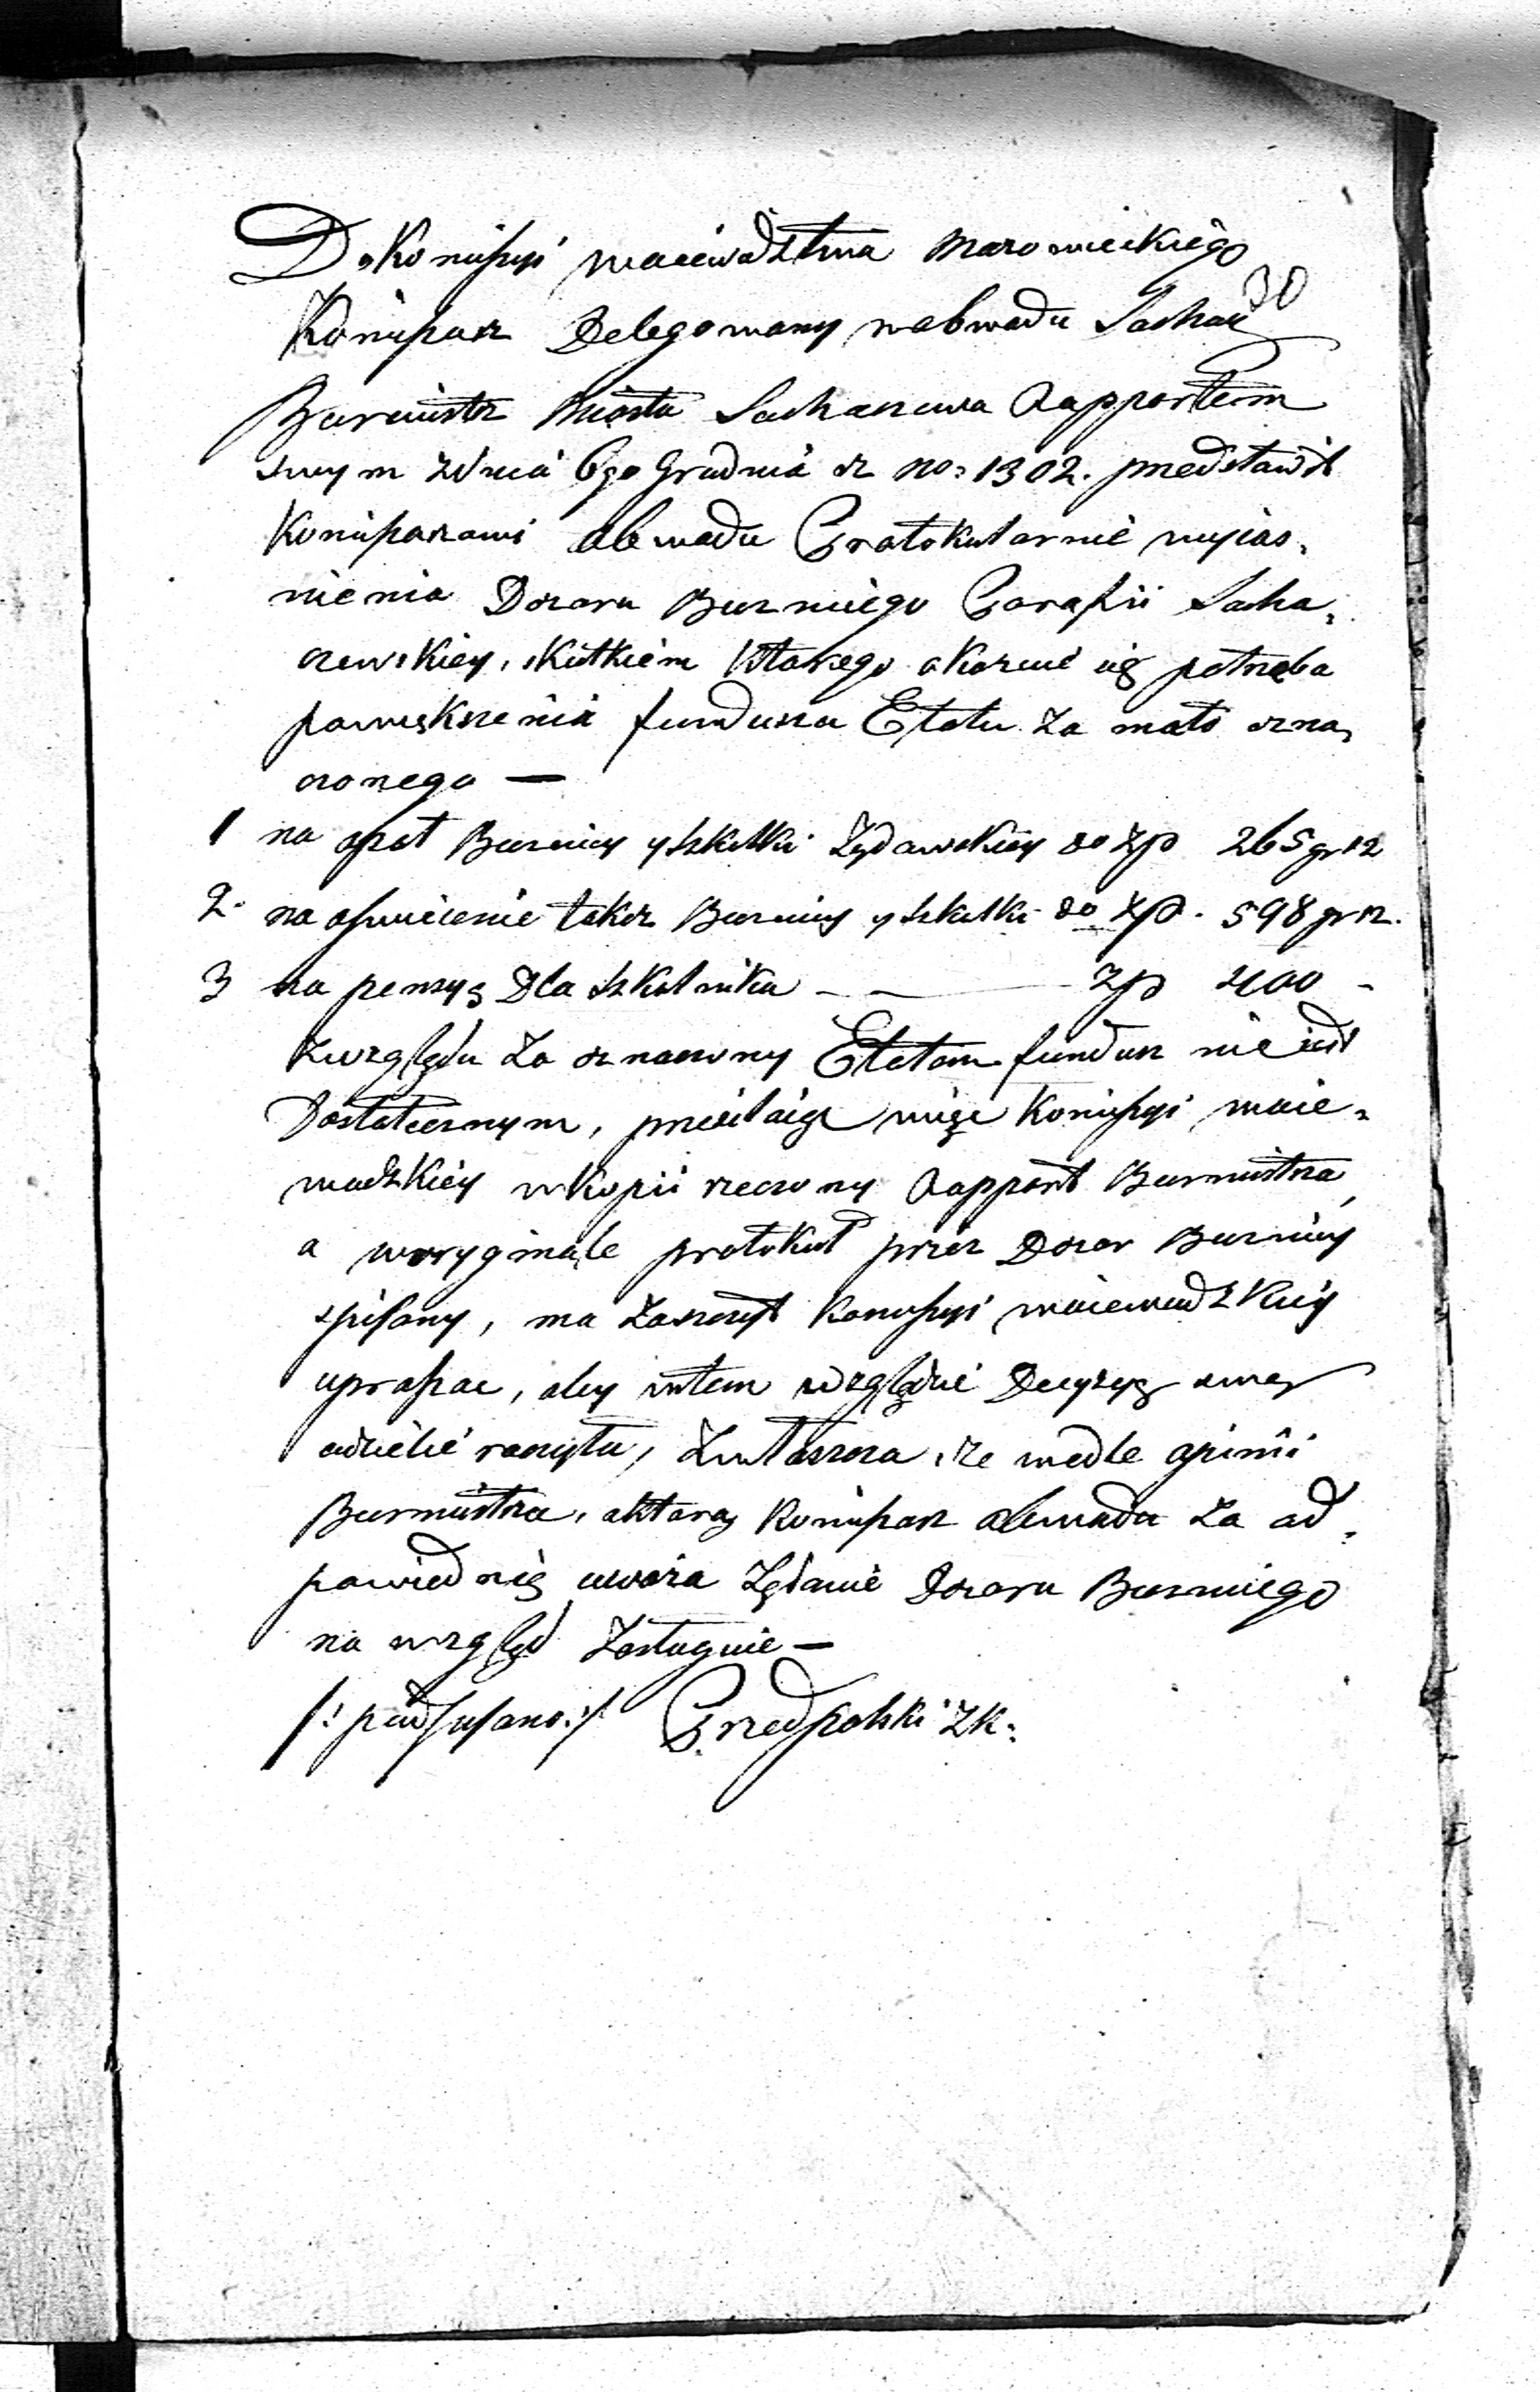 Do Kommissyi Woiewodztwa Mazowieckiego
30
Kommissarz Delegowany w Obwodu Sochacz
Burmistrz Miasta Sochaczewa Rapportem
swym z dnia 6go Grudnia r. no: 1302. przedstawił
Kommissarzowi Obwodu Protokularnie wyias=
nienia Dozoru Buzniczego Parafii Socha=
czewskiey, skutkiem którego okazuie się potrzeba
powiększenia funduszu Etatu za mało ozna=
czonego —
1 na opał Buznicy y szkółki Żydowskiey do Zp 265 gr 12
2. na oświecenie także Buznicy y szkółki do Zp. 598 gr 12.
3 na pensyę Dla Szkolnika — — Zp 400 -
Z względu że oznaczony Etatem fundusz nie iest
Dostatecznym, przesyłaiąc więc Kommissyi Woie=
wodzkiey w kopii rzeczony Rapport Burmistrza,
a w oryginale protokuł przez Dozor Buznicy
spisany, ma zaszczyt Kommissyi Woiewodzkiey
upraszać, aby w tem względzie Decyzyą swą
udzielić raczyła, zwłaszcza, że wedle opinii
Burmistrza, którą Kommissarz Obwodu za od=
powiednią uważa Żądanie Dozoru Buzniczego
na wzgląd zasługuie —
/: podpisano :/ Przedpolski ZK: